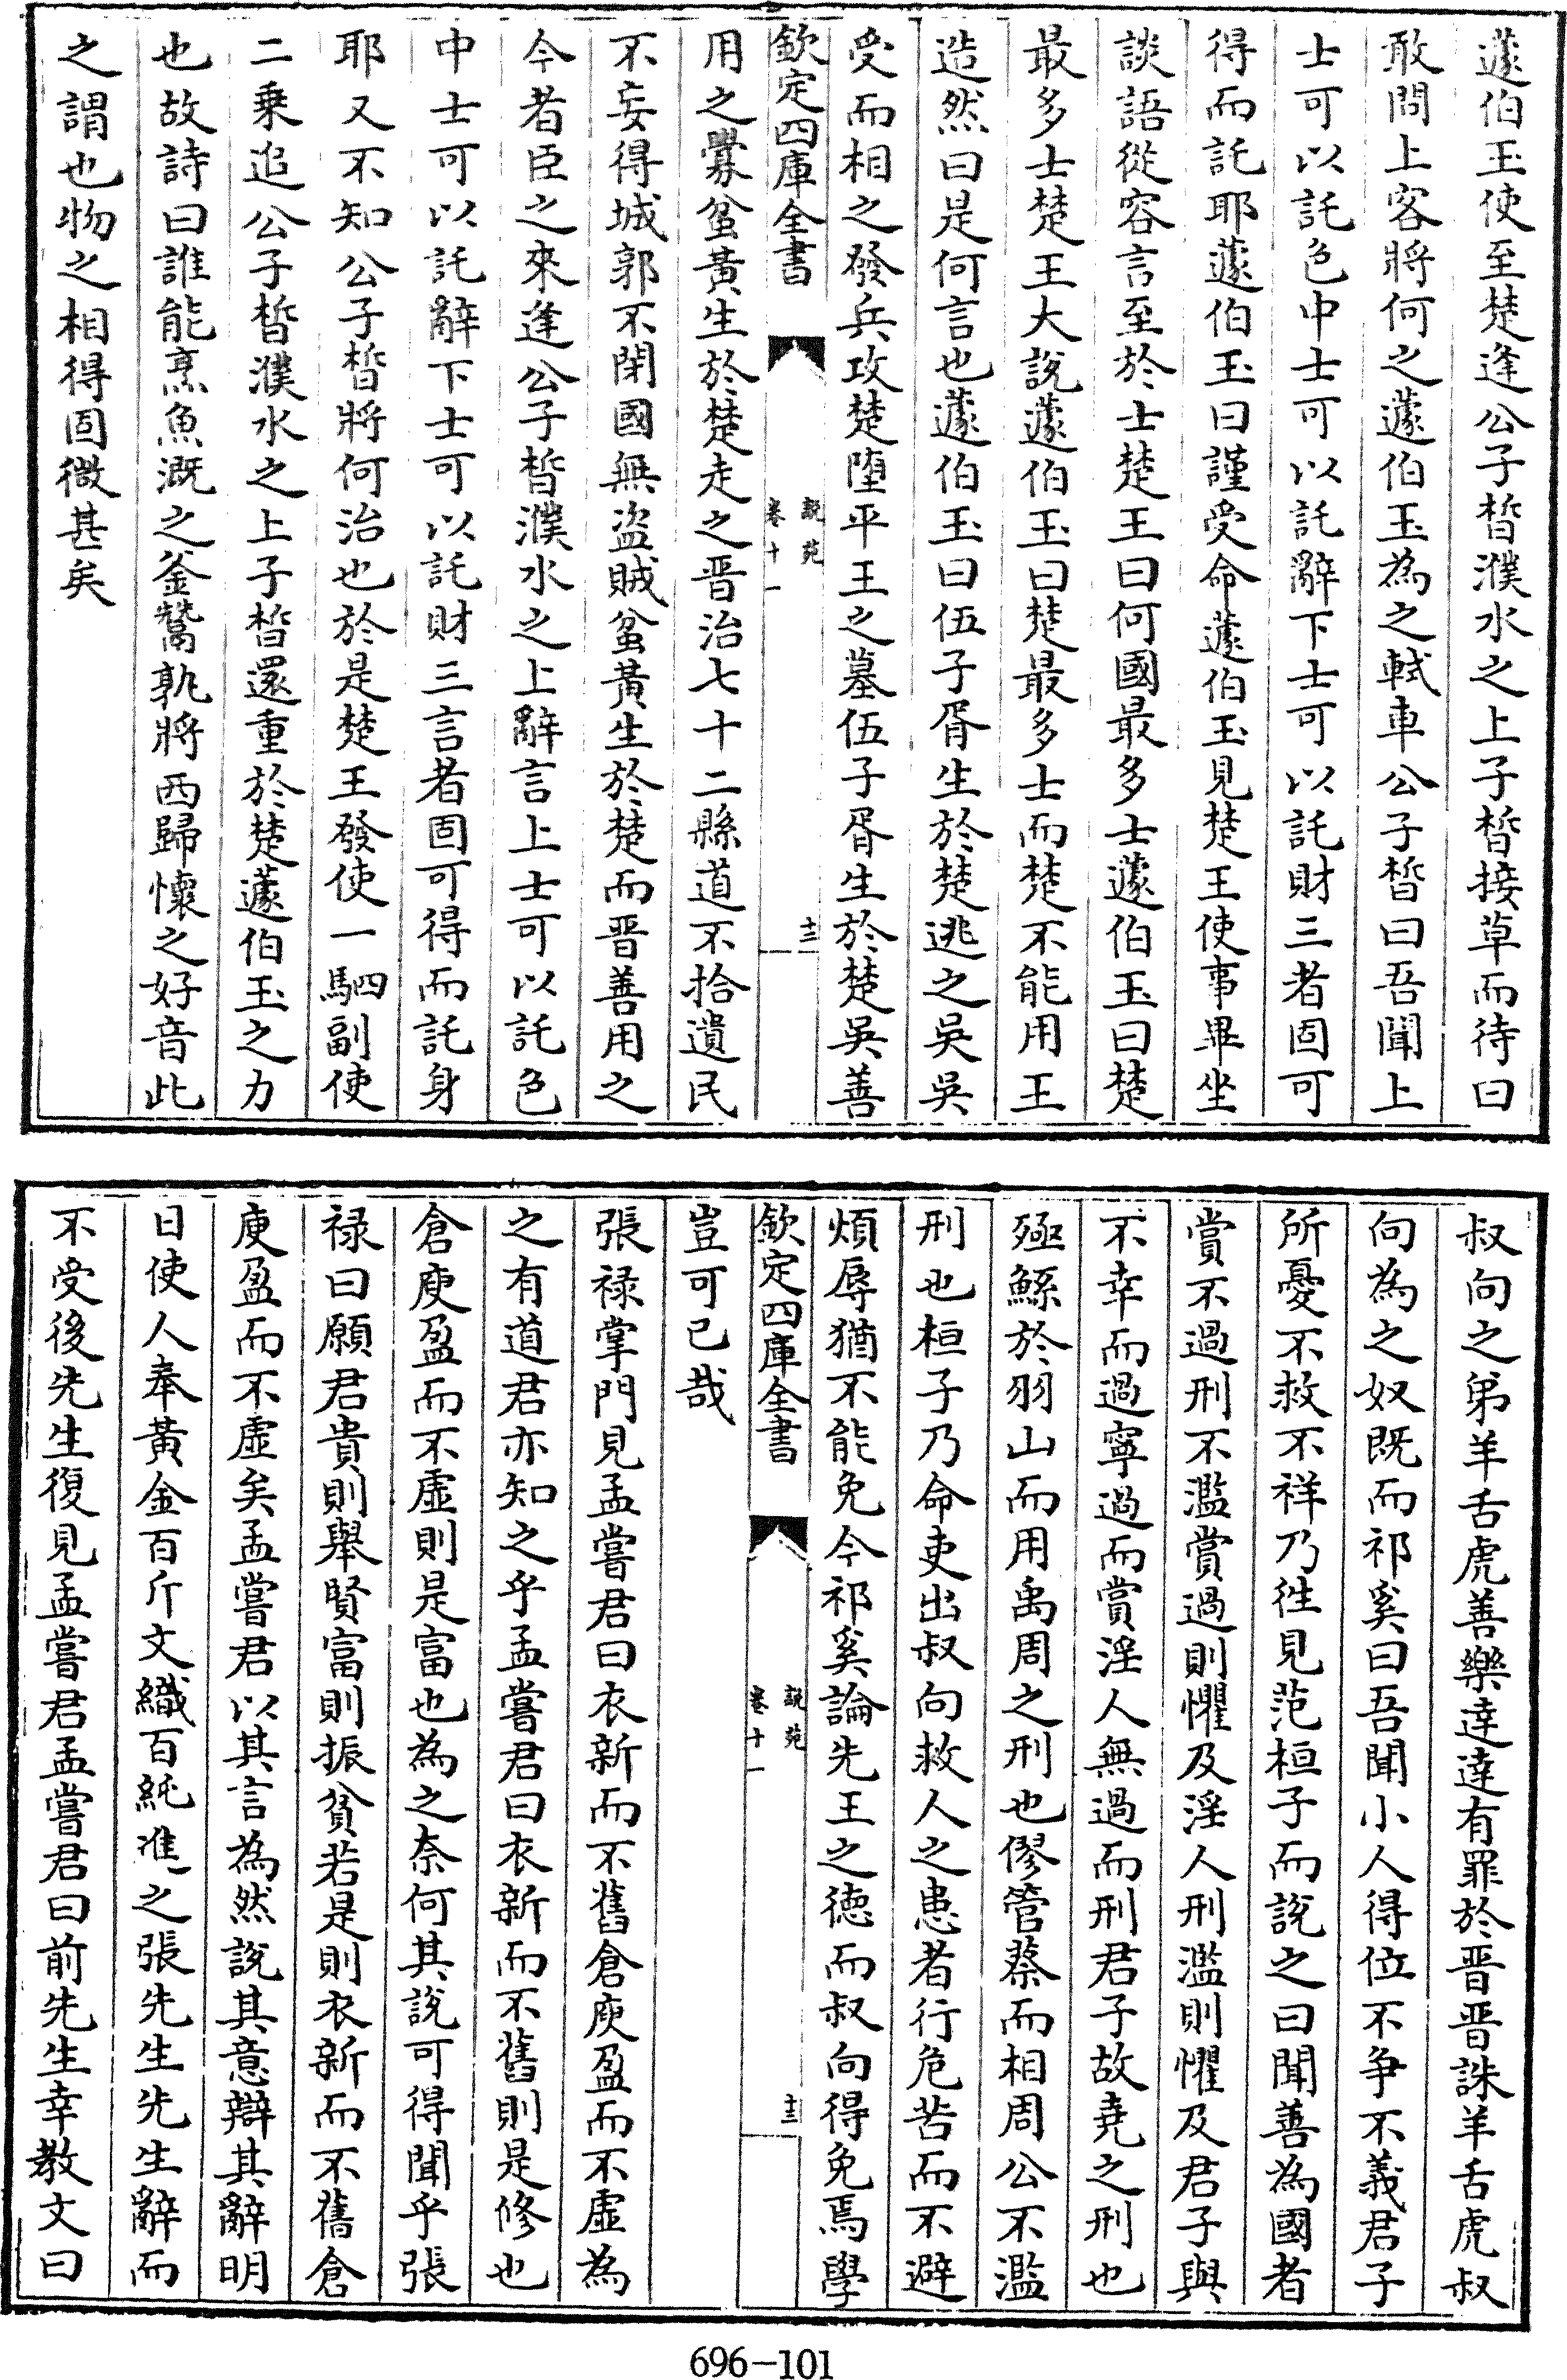 蘧伯玉使至楚逢公子晳濮水之上子晳接草而待曰
敢問上客將何之蘧伯玉為之軾車公子晳曰吾聞上
士可以託色中士可以託辭下士可以託財三者固可
得而託耶蘧伯玉曰謹受命蘧伯玉見楚王使事畢坐
談語從容言至於士楚王曰何國最多士蘧伯玉曰楚
最多士楚王大說蘧伯玉曰楚最多士而楚不能用王
造然曰是何言也蘧伯玉曰伍子胥生於楚逃之吳吳
受而相之發兵攻楚堕平王之墓伍子胥生於楚吳善
欽定四庫全書
說苑
卷十一
十三
用之釁蚠黃生於楚走之晋治七十二縣道不拾遺民
不妄得城郭不閉國無盗賊蚠黃生於楚而晋善用之
今者臣之來逢公子晳濮水之上辭言上士可以託色
中士可以託辭下士可以託財三言者固可得而託身
耶又不知公子晳將何治也於是楚王發使一駟副使
二乗追公子晳濮水之上子晳還重於楚蘧伯玉之力
也故詩曰誰能烹魚溉之釜鬵孰將西歸懷之好音此
之謂也物之相得固微甚矣
叔向之弟羊舌虎善樂逹逹有罪於晋晋誅羊舌虎叔
向為之奴既而祁奚曰吾聞小人得位不争不義君子
所憂不救不祥乃徃見范桓子而說之曰聞善為國者
賞不過刑不濫賞過則懼及淫人刑濫則懼及君子與
不幸而過寧過而賞淫人無過而刑君子故堯之刑也
殛鯀於羽山而用禹周之刑也僇管蔡而相周公不濫
刑也桓子乃命吏出叔向救人之患者行危苦而不避
煩辱猶不能免今祁奚論先王之徳而叔向得免焉學
欽定四庫全書
說苑
卷十一
十三
豈可已哉
張禄掌門見孟嘗君曰衣新而不舊倉庾盈而不虚為
之有道君亦知之乎孟嘗君曰衣新而不舊則是修也
倉庾盈而不虚則是富也為之奈何其說可得聞乎張
禄曰願君貴則舉賢富則振貧若是則衣新而不舊倉
庾盈而不虚矣孟嘗君以其言為然說其意辯其辭明
日使人奉黃金百斤文織百純進之張先生先生辭而
不受後先生復見孟嘗君孟嘗君曰前先生幸教文曰
696-101